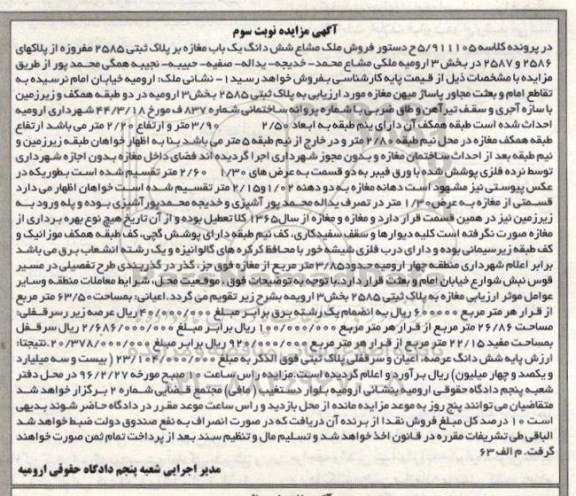 آگهی مزایده نوبت سوم
در پرونده کلاسه ۵/۹۱۱۱۰۵ح دستور فروش ملک مشاع شش دانگ یک باب مغازه بر پلاک ثبتی ۲۵۸۵ مفروزه از پلاکهای
۲۵۸۶ و ۲۵۸۷ در بخش ۳ ارومیه ملکی مشاع محمد- خدیجه- یداله- صفیه- حبیبه- نجیبه همگی محمد پور از طریق
مزایده با مشخصات ذیل از قیمت پایه کارشناسی بفروش خواهد رسید ۱- نشانی ملک: ارومیه خیابان امام نرسیده به
تقاطع امام و بعثت مجاور پاساژ میهن مغازه مورد ارزیابی به پلاک ثبتی ۲۵۸۵ بخش ۳ ارومیه در دو طبقه همکف و زیرزمین
با سازه آجری و سقف تیرآهن و طاق ضربی با شماره پروانه ساختمانی شماره ۸۳۷ ف مورخ ۴۴/۳/۱۸ شهرداری ارومیه
احداث شده است طبقه همکف آن دارای نیم طبقه به ابعاد ۲/۵۰ ۳/۹۰ متر و ارتفاع ۲/۲۰ متر می باشد ارتفاع
طبقه همکف مغازه در محل نیم طبقه ۲/۸۰ متر و در خارج از نیم طبقه ۵ متر می باشد بنا به اظهار خواهان طبقه زیرزمین و
نیم طبقه بعد از احداث ساختمان مغازه و بدون مجوز شهرداری اجرا گردیده اند فضای داخل مغازه بدون اجازه شهرداری
توسط نرده فلزی پوشش شده با ورق فیبر به دو قسمت به عرض های ۱/۳۰ ۲/۶۰ متر تقسیم شده است بطوریکه در
عکس پیوستی نیز مشهود است دهانه مغازه به دو دهنه ۱/۰۲ و ۲/۱۵ متر تقسیم شده است خواهان اظهار می دارد
قسمتی از مغازه به عرض ۱/۳۰ متر در تصرف یداله محمد پور آشپزی و خدیجه محمدپور آشپزی بوده و پله ورود به
زیرزمین نیز در همین قسمت قرار دارد و مغازه و مغازه از سال ۱۳۶۵ کلا تعطیل بوده و از آن تاریخ هیچ نوع بهره برداری از
مغازه صورت نگرفته است کلیه دیوارها و سقف سفیدکاری، کف نیم طبقه دارای پوشش گچی، کف طبقه همکف موزائیک و
کف طبقه زیر سیمانی بوده و دارای درب فلزی شیشه خور با محافظ کرکره های گالوانیزه و یک رشته انشعاب برق می باشد
برابر اعلام شهرداری منطقه چهار ارومیه حدود ۳/۸۵ متر مربع از مغازه فوق جز، گذر در کاربندی طرح تفصیلی در مسیر
قوس نبش شوارع خیابان امام و بعثت قرار دارد. با توجه به توضیحات فوق، موقعیت محل، شرایط معاملات منطقه و سایر
عوامل موثر ارزیابی مغازه به پلاک ثبتی ۲۵۸۵ بخش ۳ ارومیه بشرح زیر تقویم می گردد. اعیانی: بمساحت ۶۳/۵۰ متر مربع
از قرار هر متر مربع ۶۰۰۰۰۰۰ ریال به انضمام یک رشته برق برابر مبلغ ریال عرصه زیر سرقفلی:
مساحت ۲۶/۸۶ متر مربع از قرار هر متر مربع ریال برابر مبلغ ۲/۶۸۶/۰۰۰/۰۰۰ ریال سرقفل
بمساحت مفید ۲۲/۱۵ متر مربع از قرار هر متر مربع ریال برابر مبلغ ۲۰/۳۷۸/۰۰۰/۰۰۰ نتیجتا:
ارزش پایه شش دانگ عرصه، اعیان و سرقفلی پلاک ثبتی فوق الذکر به مبلغ ( بیست و سه میلیارد
و یکصد و چهار میلیون) ریال برآورد و اعلام گردیده است. مزایده راس ساعت ۱۰ صبح مورخه ۹۶/۲/۲۷ در محل دفتر
شعبه پنجم دادگاه حقوقی ارومیه بنشانی ارومیه بلوار دستغیب( مافی) مجتمع قضایی شماره ۲ برگزار خواهد شد
متقاضیان می توانند پنج روز به موعد مزایده مانده از محل بازدید و راس ساعت موعد مقرر در دادگاه حاضر شوند بدیهی
است ۱۰ درصد کل مبلغ فروش نقدا از برنده آن دریافت که در صورت انصراف به نفع صندوق دولت ضبط خواهد شد
الباقی طی تشریفات مقرره در قانون اخذ خواهد شد و تسلیم مال و تنظیم سند بعد از پرداخت تمام ثمن صورت خواهند
گرفت. م الف ۶۳
مدیر اجرایی شعبه پنجم دادگاه حقوقی ارومیه